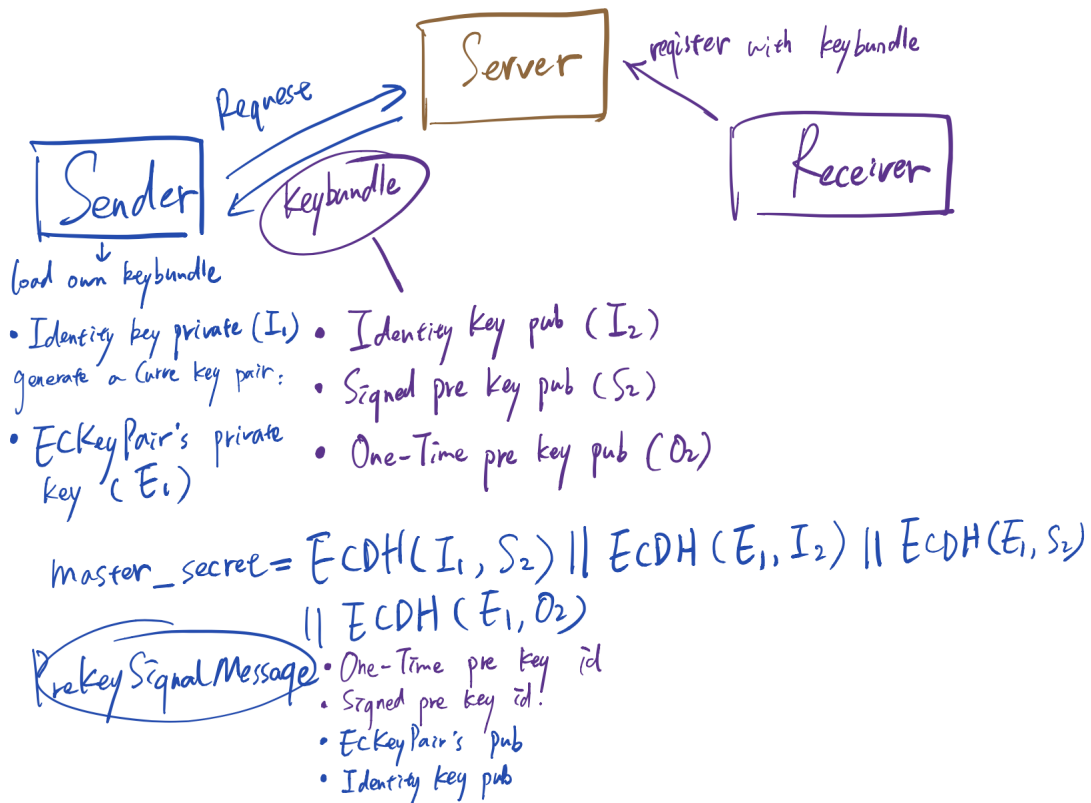 Server
register with keybundle
Request
Receiver
Sender
Keybundle
load own keybundle
• Identity key private (I₁)
generate a Curve key pair:
• ECKeyPair's private
key (E₁)
• Identity Key pub (I₂)
• Signed pre key pub (S₂)
• One-Time pre key pub (O₂)
master_secret = ECDH(I₁, S₂) || ECDH(E₁, I₂) || ECDH(E₁, S₂)
|| ECDH(E₁, O₂)
PreKeySignalMessage
• One-Time pre key id
• Signed pre key id.
• ECKeyPair's pub
• Identity key pub